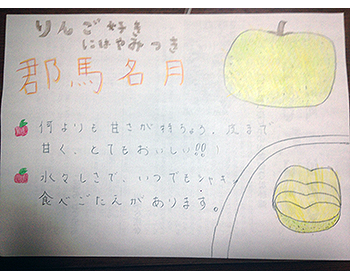 りんご好き
にはやみつき
郡馬名月
何よりも甘さが特ちょう、皮まで
甘く、とてもおいしい!!
水々しさで、いつでもシャキ。
食べごたえがあります。